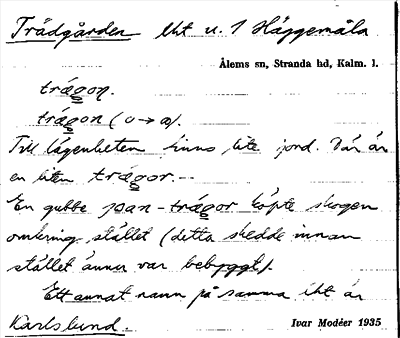 Trädgården lht u. 1 Häggemåla
Ålems sn, Stranda hd, Kalm. l.
trágọn.
trágọn (o→a).
Till lägenheten finns lite jord. Där är
en liten trágọr.--
En gubbe pan-trágọr köpte skogen
omkring stället (detta skedde innan
stället ännu var bebyggt).
Ett annat namn på samma lht är
Karlslund.
Ivar Modéer 1935